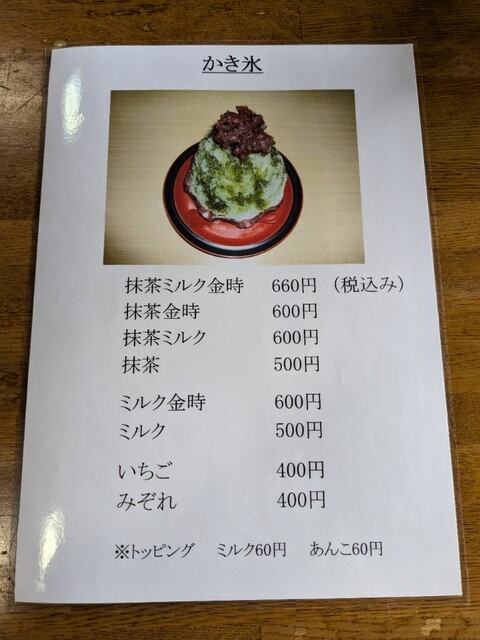 かき氷
抹茶ミルク金時 660円 (税込み)
抹茶金時 600円
抹茶ミルク 600円
抹茶 500円
ミルク金時 600円
ミルク 500円
いちご 400円
みぞれ 400円
※トッピング ミルク60円 あんこ60円